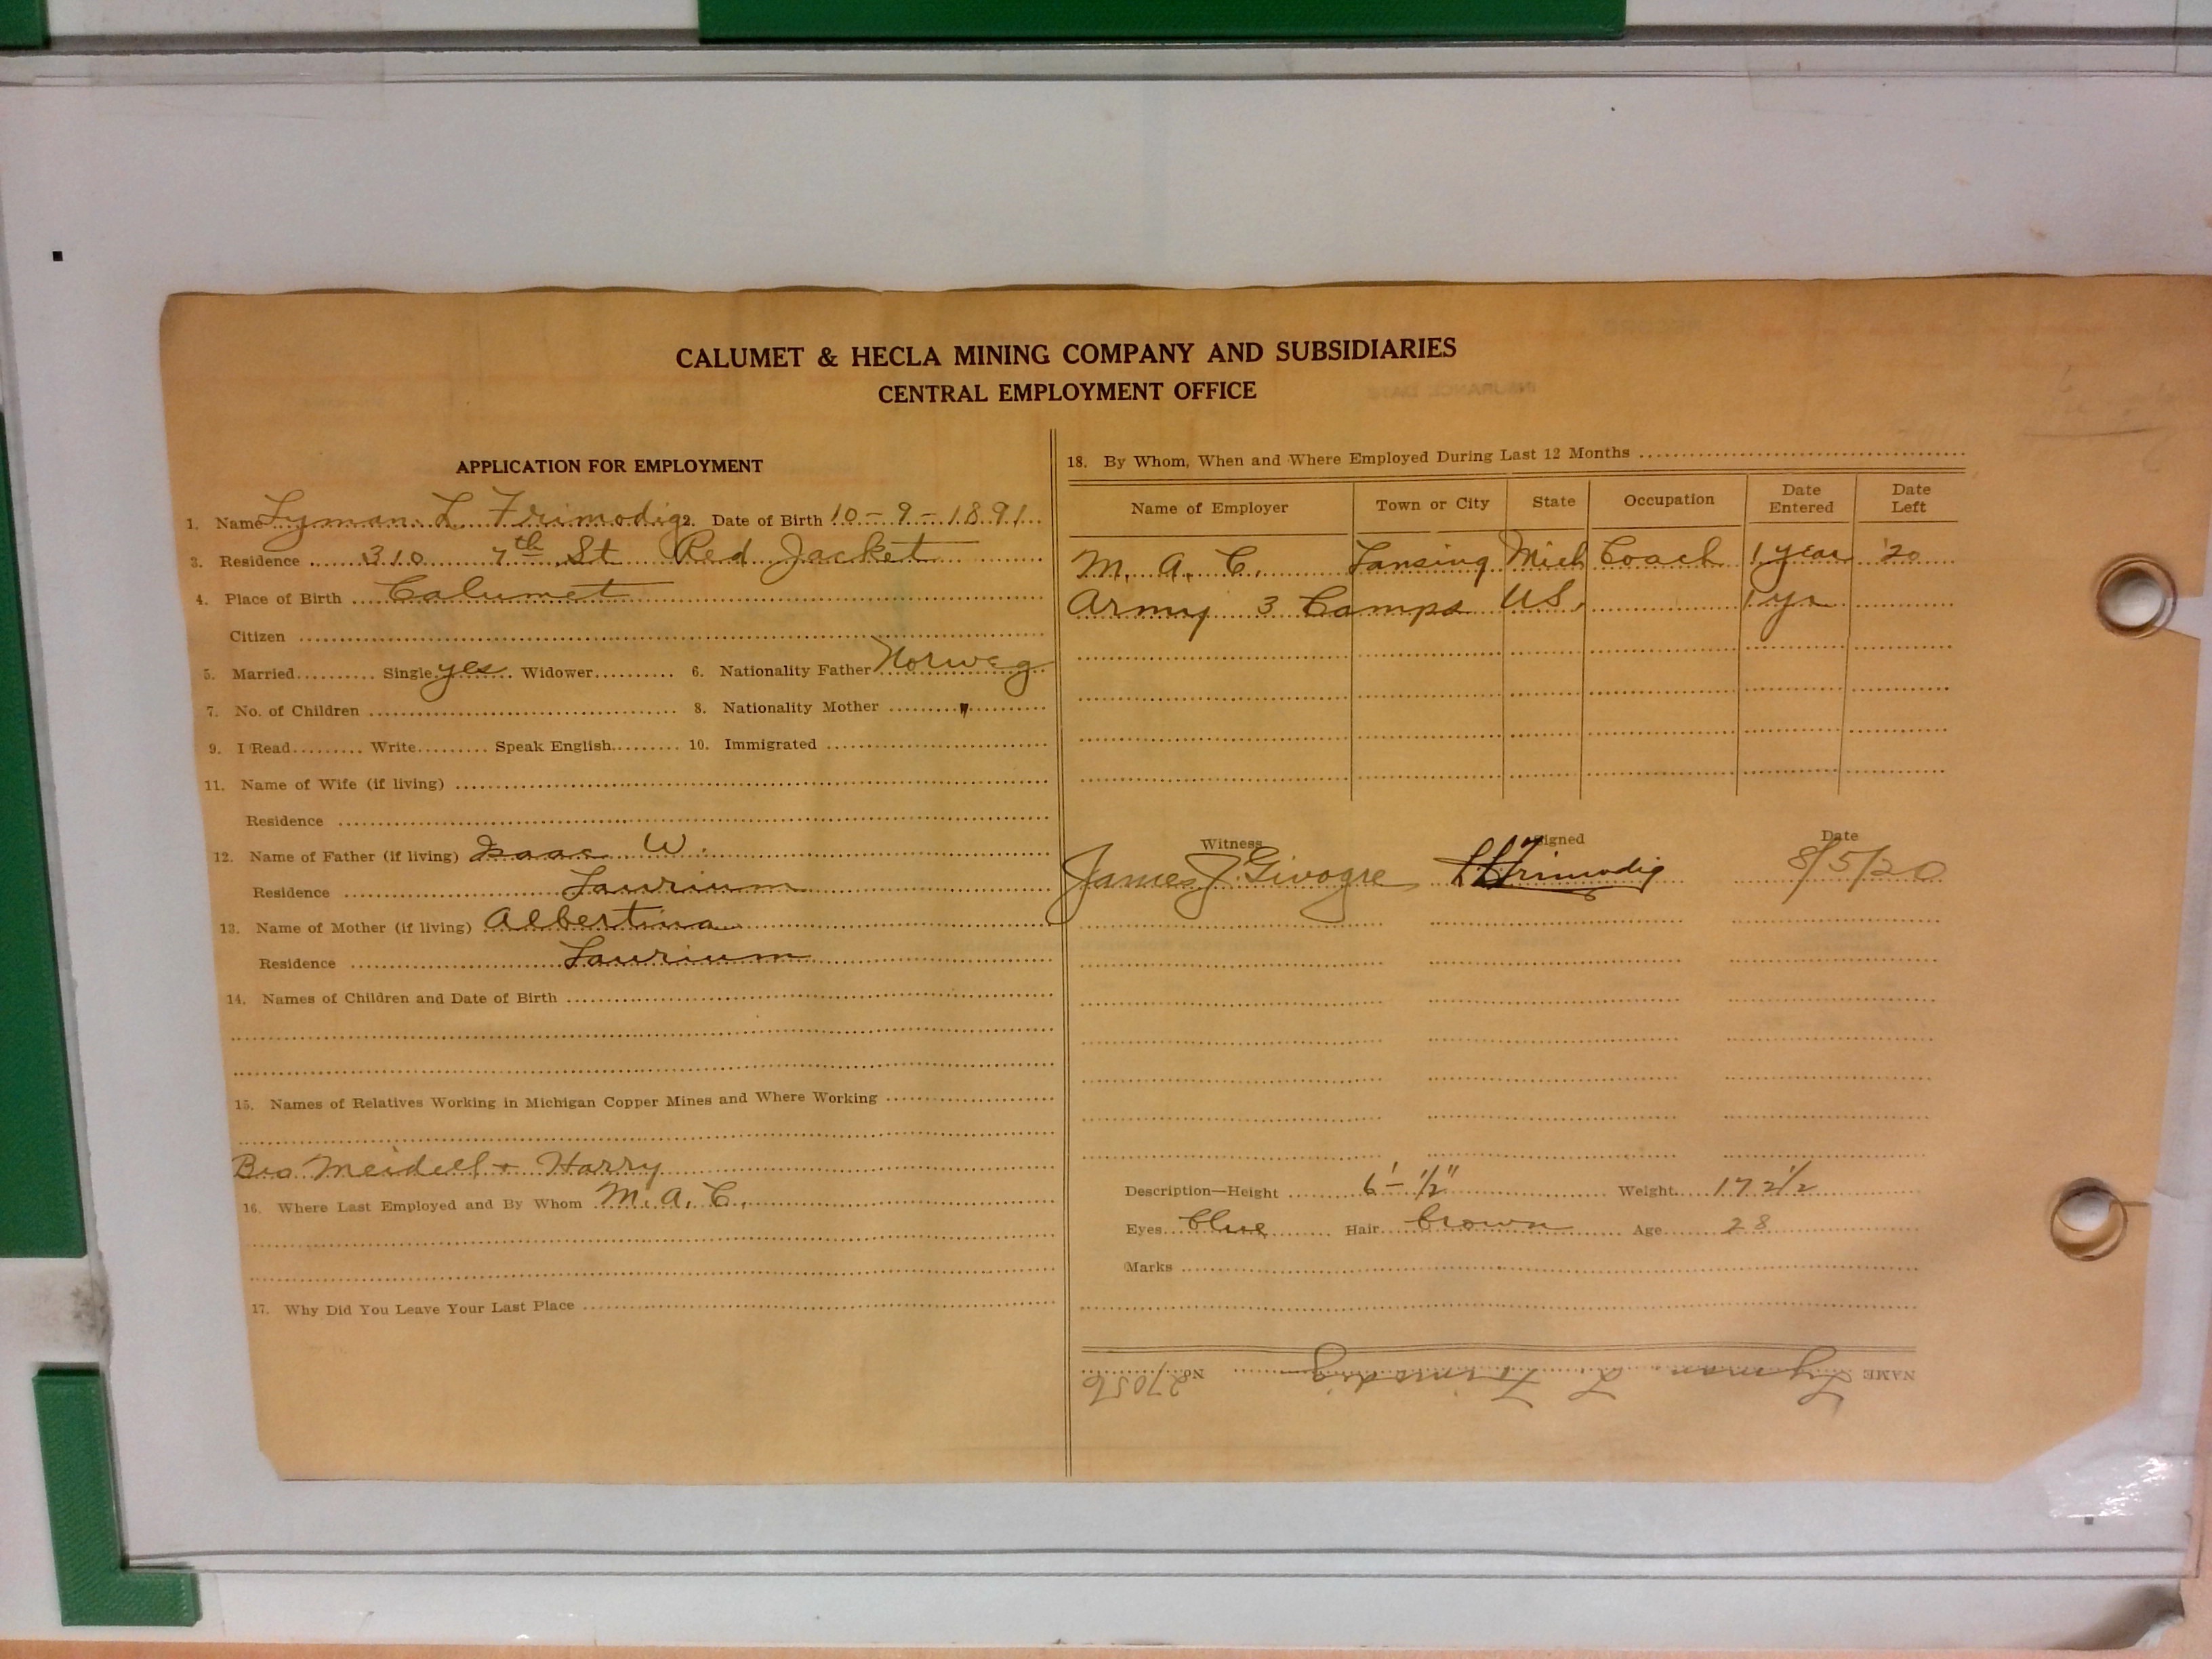 CALUMET & HECLA MINING COMPANY AND SUBSIDIARIES
CENTRAL EMPLOYMENT OFFICE
APPLICATION FOR EMPLOYMENT
1. Name Lyman L Frimodig 2. Date of Birth 10-9-1891
3. Residence 310 7th St Red Jacket
4. Place of Birth Calumet
Citizen
5. Married Single yes Widower 6. Nationality Father Norweg
7. No. of Children 8. Nationality Mother "
9. I Read Write Speak English 10. Immigrated
11. Name of Wife (if living)
Residence
12. Name of Father (if living) Isaac W.
Residence Laurium
13. Name of Mother (if living) Albertina
Residence Laurium
14. Names of Children and Date of Birth
15. Names of Relatives Working in Michigan Copper Mines and Where Working
Bro Meidell + Harry
16. Where Last Employed and By Whom M. A. C.
17. Why Did You Leave Your Last Place
18. By Whom, When and Where Employed During Last 12 Months
Name of Employer Town or City State Occupation Date Entered Date Left
M. A. C. Lansing Mich Coach 1 year '20
Army 3 Camps U.S. 1 yr
Witness Signed Date
James J. Givogre L L Frimodig 8/5/20
Description—Height 6'-1/2" Weight 172 1/2
Eyes blue Hair brown Age 28
Marks
NAME Lyman L Frimodig No. 27056